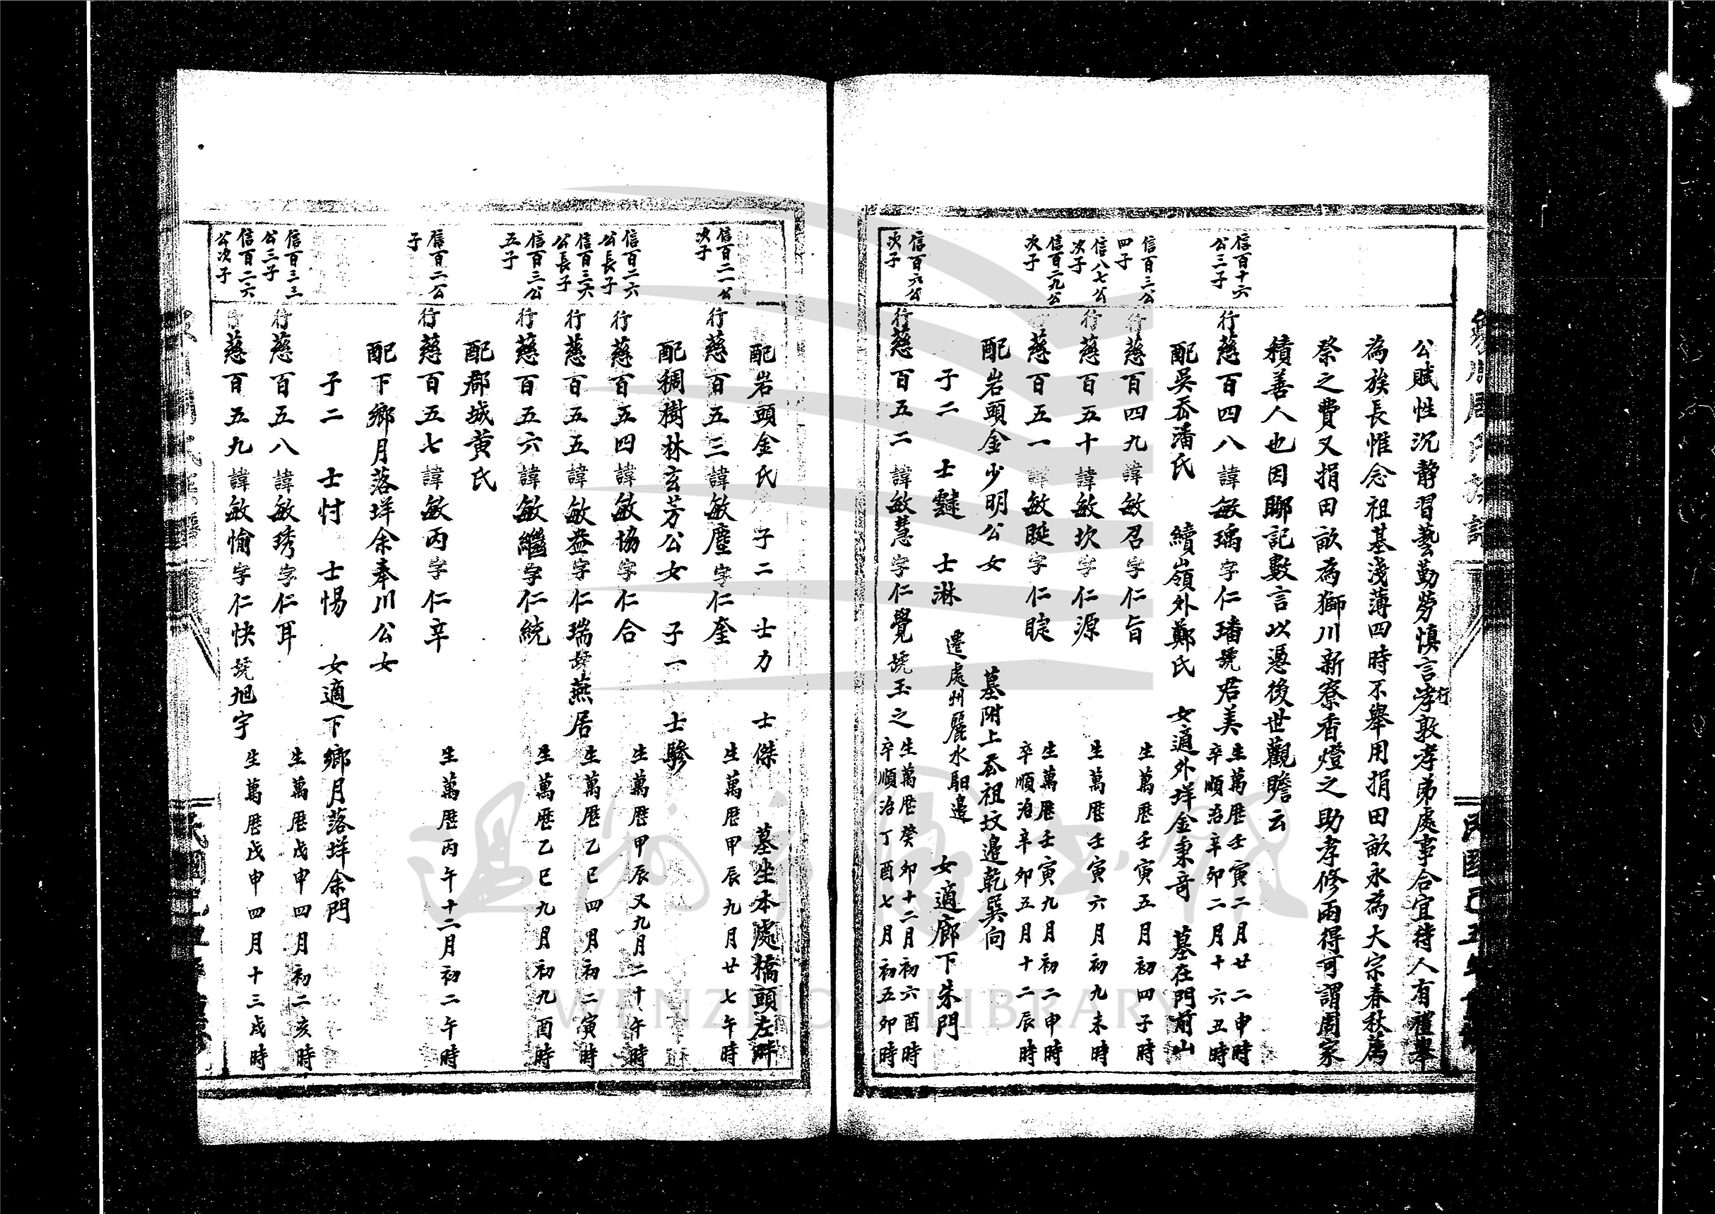 公賦性沉靜習藝勤勞慎言孝行敦孝弟處事合宜待人有禮舉
為族長惟念祖基淺薄四時不舉用捐田畝永為大宗春秋薦
祭之費又捐田畝為獅川新寮香燈之助孝修兩得可謂周家
積善人也因聊記數言以憑後世觀瞻云
信百十六公三子
行慈百四八諱敏瑀字仁璠號君美 生萬歷壬寅二月廿二申時 卒順治辛卯二月十六丑時
配吳岙潘氏 續嶺外鄭氏 女適外垟金秉奇 墓在門前山
信百三公四子
行慈百四九諱敏召字仁旨 生萬歷壬寅五月初四子時
信八七公次子
行慈百五十諱敏坎字仁源 生萬歷壬寅六月初九未時
信百二九公次子
行慈百五一諱敏睚字仁睕 生萬歷壬寅九月初二申時 卒順治辛卯五月十二辰時
配岩頭金少明公女 墓附上岙祖坟邊乾巽向
子二 士鼗 士淋 遷處州麗水駔邊 女適廊下朱門
信百六公次子
行慈百五二諱敏慧字仁覺號玉之 生萬歷癸卯十二月初六酉時 卒順治丁酉七月初五卯時
配岩頭金氏 子二 士力 士傑 墓坐本處橋頭左畔
信百二一公次子
行慈百五三諱敏塵字仁奎 生萬歷甲辰九月廿七午時
配稠樹林玄芳公女 子一 士驂
信百二六公長子
行慈百五四諱敏協字仁合 生萬歷甲辰又九月二十午時
信百三六公長子
行慈百五五諱敏益字仁瑞號燕居 生萬歷乙巳四月初二寅時
信百三公五子
行慈百五六諱敏繼字仁統 生萬歷乙巳九月初九酉時
配郡城黃氏
信百二公子
行慈百五七諱敏丙字仁辛 生萬歷丙午十二月初二午時
配下鄉月落垟余奉川公女
子二 士忖 士惕 女適下鄉月落垟余門
信百三三公三子
行慈百五八諱敏琇字仁耳 生萬歷戊申四月初二亥時
信百二六公次子
行慈百五九諱敏愉字仁快號旭宇 生萬歷戊申四月十三戌時
WENZHOU LIBRARY